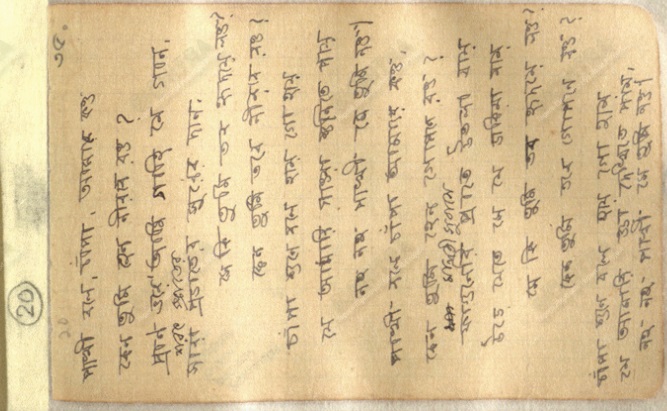 20
৩৫.
পাখী বলে, চাঁপা, আমারে কহ
কেন তুমি হেন নীরবে রহ ?
প্রাণ ভরে আমি গাহি যে গান,
সারা প্রভাতের সুরের দান,
সে কি তুমি তব হৃদয়ে লহ?
কেন তুমি তবে নীরবে রহ ?
চাঁপা শুনে বলে হায় গো হায়
যে আমারি গাওয়া শুনিতে পায়
নহ নহ পাখী সে তুমি নহ।
পাখী বলে চাঁপা আমারে কহ,
কেন তুমি হেন গোপনে রহ ?
ফাগুনের প্রাতে উতলা বায়
উড়ে যেতে সে যে ডাকিয়া যায়
সে কি তুমি তব হৃদয়ে লহ ?
কেন তুমি তবে গোপনে রহ ?
চাঁপা শুনে বলে হায় গো হায়
যে আমারি ওড়া দেখিতে পায়,
নহ নহ পাখী সে তুমি নহ।